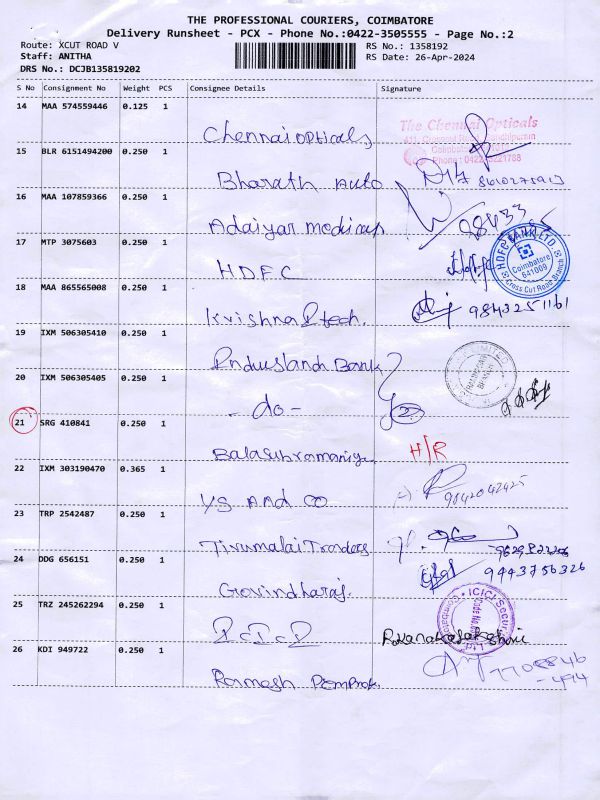 THE PROFESSIONAL COURIERS, COIMBATORE
Delivery Runsheet - PCX - Phone No.:0422-3505555 - Page No.:2
Route: XCUT ROAD V
RS No.: 1358192
Staff: ANITHA
RS Date: 26-Apr-2024
DRS No.: DCJB135819202
S No Consignment No Weight PCS Consignee Details Signature
14 MAA 574559446 0.125 1
Chennai opticals
The Chennai Opticals
15 BLR 6151494200 0.250 1
Bharath Auto
16 MAA 107859366 0.250 1
Adaiyar medicap
98433
17 MTP 3075603 0.250 1
HDFC
HDFC BANK LTD.
Coimbatore
641009
Cross Cut Road Branch
18 MAA 865565008 0.250 1
Krishna P tech.
9843251161
19 IXM 506305410 0.250 1
Induslandh Bank
20 IXM 506305405 0.250 1
- do -
2
21 SRG 410841 0.250 1
Balasubramaniya
H/R
22 IXM 303190470 0.365 1
YS AND CO
9842042425
23 TRP 2542487 0.250 1
Tirumalai Traders
24 DDG 656151 0.250 1
Govindharaj.
9443756326
25 TRZ 245262294 0.250 1
I-C-I-C-I
ICICI Secur
26 KDI 949722 0.250 1
Ramesh
7708846
-494